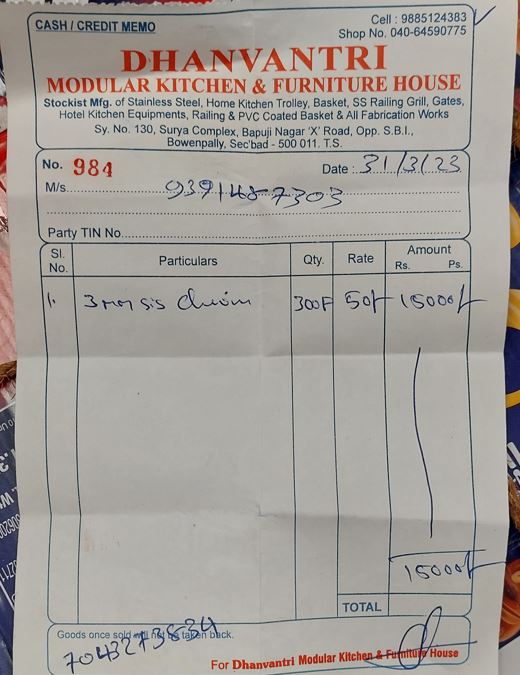 CASH / CREDIT MEMO
Cell : 9885124383
Shop No. 040-64590775
DHANVANTRI
MODULAR KITCHEN & FURNITURE HOUSE
Stockist Mfg. of Stainless Steel, Home Kitchen Trolley, Basket, SS Railing Grill, Gates,
Hotel Kitchen Equipments, Railing & PVC Coated Basket & All Fabrication Works
Sy. No. 130, Surya Complex, Bapuji Nagar 'X' Road, Opp. S.B.I.,
Bowenpally, Sec'bad - 500 011. T.S.
No. 984 Date : 31/3/23
M/s. 9391487303
Party TIN No.
Sl. No. Particulars Qty. Rate Amount Rs. Ps.
1. 3mm s/s 300F 50/- 15000/-
15000/-
TOTAL
Goods once sold will not be taken back.
For Dhanvantri Modular Kitchen & Furniture House